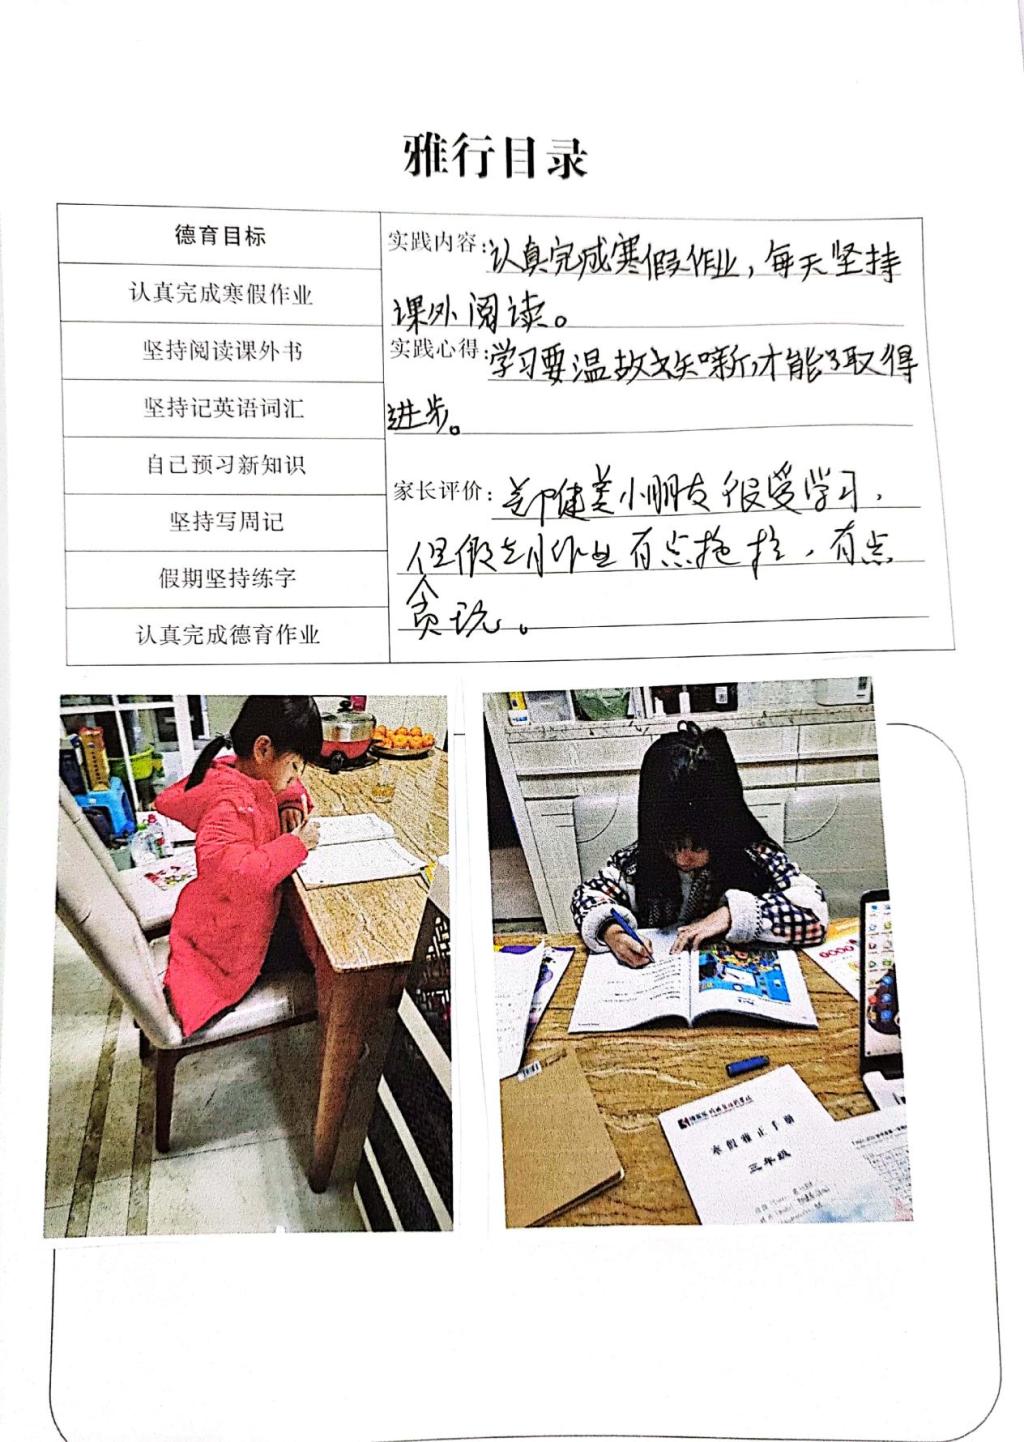 雅行目录
德育目标
认真完成寒假作业
坚持阅读课外书
坚持记英语词汇
自己预习新知识
坚持写周记
假期坚持练字
认真完成德育作业
实践内容:认真完成寒假作业,每天坚持
课外阅读。
实践心得:学习要温故知新,才能取得
进步。
家长评价:小朋友很爱学习,
但假期作业有点拖拉,有点
贪玩。
寒假雅正手册
三年级